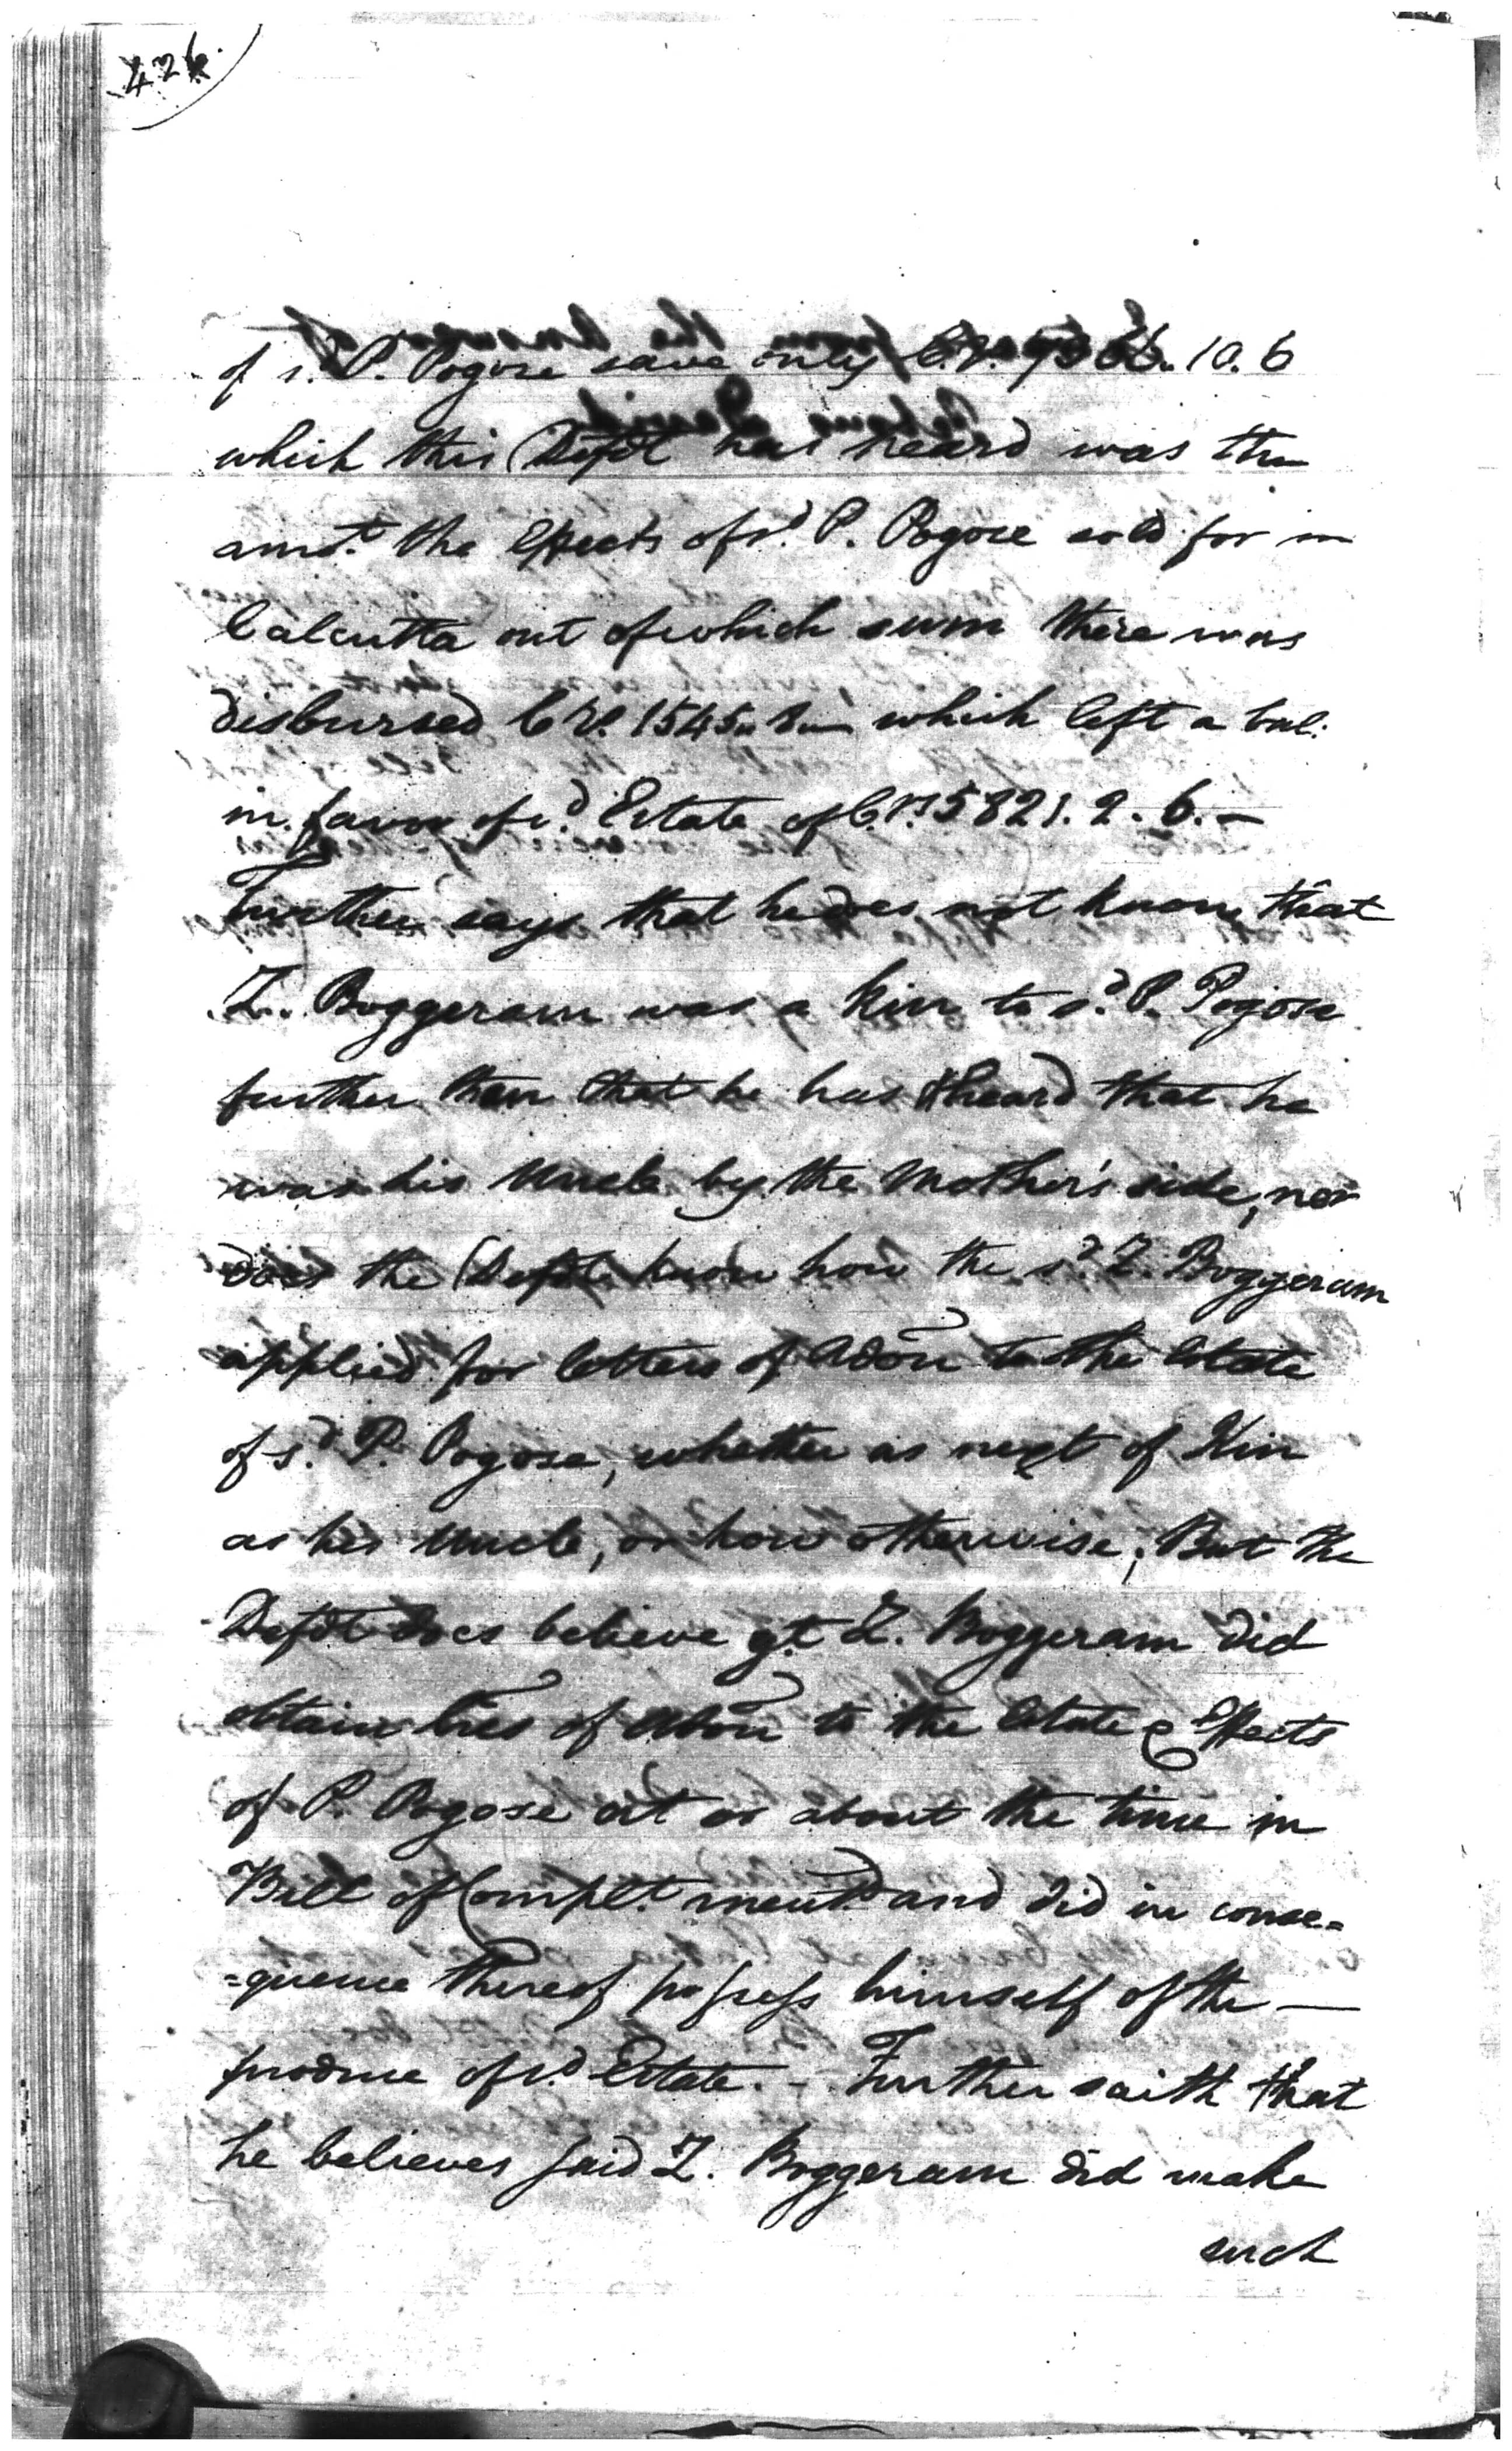 426.
of s.d P. Pogose save only C.R. 7366. 10. 6
which this Defdt has heard was the
amot. the Effects of sd. P. Pogose sold for in
Calcutta out of which sum there was
disbursed C Rs. 1545,, 8,,— which left a bal:
in favor of sd. Estate of C.Rs 5821. 2. 6. —
Further says that he does not know that
Z. Boggeram was a kin to s.d P. Pogose
further then that he has heard that he
was his Uncle by the Mother's side, nor
does the Defdt know how the sd Z. Boggeram
applied for letters of Adon to the Estate
of s.d P. Pogose, whether as next of Kin
as his Uncle, or how otherwise; But the
Defdt does believe yt Z. Boggeram did
obtain Lres of Adon to the Estate & Effects
of P. Pogose at or about the time in
Bill of Complt. mentd and did in conse=
=quence thereof possess himself of the —
produce of sd Estate. - Further saith that
he believes said Z. Boggeram did make
such